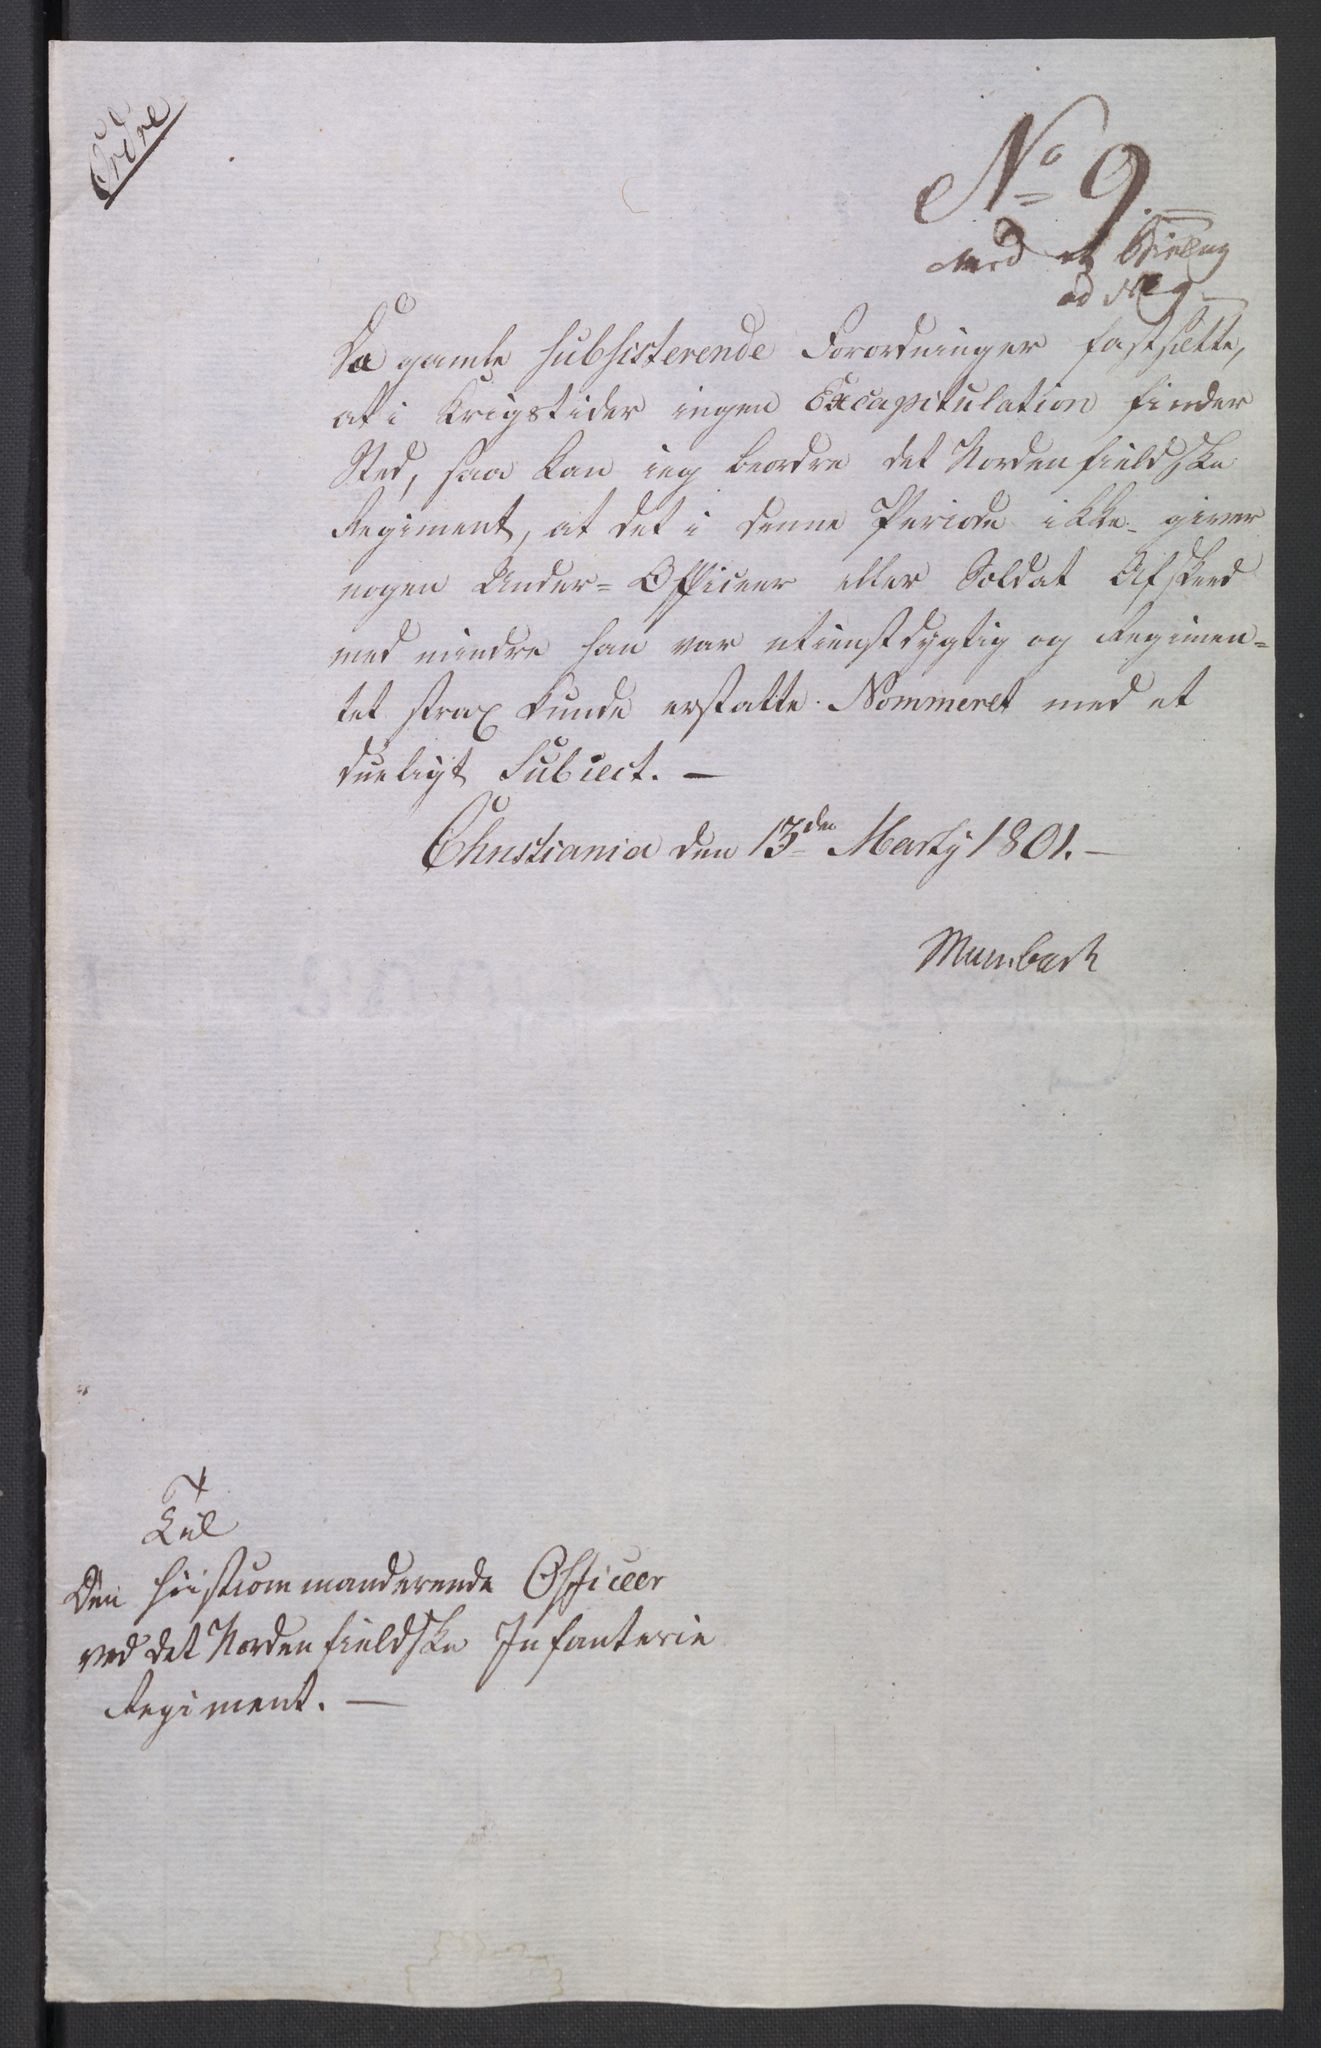 Ordre
No 9.
Med et Bielag
ad No 9
Da gamle subsisterende Forordninger fastsætte,
at i Krigstider ingen Excapitulation finder
Sted, saa kan ieg beordre det Nordenfieldske
Regiment, at det i denne Periode ikke giver
nogen Under-Officeer eller Soldat Afskeed
med mindre han var utienstdygtig og Regimen-
tet strax kunde erstatte Nommeret med et
dueligt Subiect. —
Christiania den 13de Martij 1801. —
Til
Den høistcommanderende Officeer
ved det Nordenfieldske Infanterie
Regiment. —